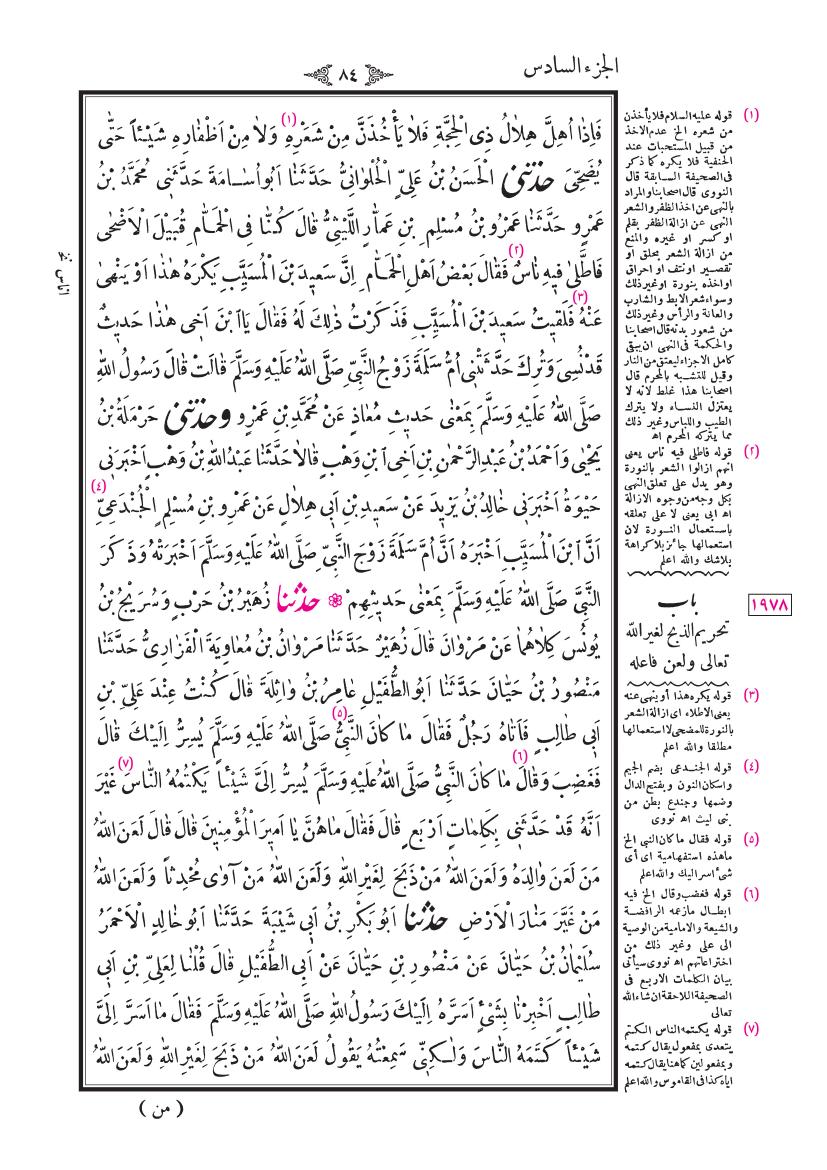 الجزء السادس
٨٤
فَاِذَا اُهِلَّ هِلَالُ ذِى الْحِجَّةِ فَلَا يَأْخُذَنَّ مِنْ شَعْرِهِ (١) وَلَا مِنْ اَظْفَارِهِ شَيْئاً حَتّٰى
يُضَحِّىَ حَدَّثَنِى الْحَسَنُ بْنُ عَلِىٍّ الْحُلْوَانِىُّ حَدَّثَنَا اَبُو اُسَامَةَ حَدَّثَنِى مُحَمَّدُ بْنُ
عَمْرٍو حَدَّثَنَا عَمْرُو بْنُ مُسْلِمِ بْنِ عَمَّارٍ اللَّيْثِىُّ قَالَ كُنَّا فِى الْحَمَّامِ قُبَيْلَ الْاَضْحٰى
فَاطَّلٰى فِيهِ نَاسٌ (٢) فَقَالَ بَعْضُ اَهْلِ الْحَمَّامِ اِنَّ سَعِيدَ بْنَ الْمُسَيَّبِ يَكْرَهُ هٰذَا اَوْ يَنْهٰى
عَنْهُ (٣) فَلَقِيتُ سَعِيدَ بْنَ الْمُسَيَّبِ فَذَكَرْتُ ذٰلِكَ لَهُ فَقَالَ يَا ابْنَ اَخِى هٰذَا حَدِيثٌ
قَدْ نُسِىَ وَتُرِكَ حَدَّثَتْنِى اُمُّ سَلَمَةَ زَوْجُ النَّبِىِّ صَلَّى اللّٰهُ عَلَيْهِ وَسَلَّمَ قَالَتْ قَالَ رَسُولُ اللّٰهِ
صَلَّى اللّٰهُ عَلَيْهِ وَسَلَّمَ بِمَعْنٰى حَدِيثِ مُعَاذٍ عَنْ مُحَمَّدِ بْنِ عَمْرٍو وَحَدَّثَنِى حَرْمَلَةُ بْنُ
يَحْيٰى وَاَحْمَدُ بْنُ عَبْدِ الرَّحْمٰنِ بْنِ اَخِى ابْنِ وَهْبٍ قَالَا حَدَّثَنَا عَبْدُ اللّٰهِ بْنُ وَهْبٍ اَخْبَرَنِى
حَيْوَةُ اَخْبَرَنِى خَالِدُ بْنُ يَزِيدَ عَنْ سَعِيدِ بْنِ اَبِى هِلَالٍ عَنْ عَمْرِو بْنِ مُسْلِمٍ الْجُنْدَعِىِّ (٤)
اَنَّ ابْنَ الْمُسَيَّبِ اَخْبَرَهُ اَنَّ اُمَّ سَلَمَةَ زَوْجَ النَّبِىِّ صَلَّى اللّٰهُ عَلَيْهِ وَسَلَّمَ اَخْبَرَتْهُ وَذَكَرَ
النَّبِىَّ صَلَّى اللّٰهُ عَلَيْهِ وَسَلَّمَ بِمَعْنٰى حَدِيثِهِمْ ❁ حَدَّثَنَا زُهَيْرُ بْنُ حَرْبٍ وَسُرَيْجُ بْنُ
يُونُسَ كِلَاهُمَا عَنْ مَرْوَانَ قَالَ زُهَيْرٌ حَدَّثَنَا مَرْوَانُ بْنُ مُعَاوِيَةَ الْفَزَارِىُّ حَدَّثَنَا
مَنْصُورُ بْنُ حَيَّانَ حَدَّثَنَا اَبُو الطُّفَيْلِ عَامِرُ بْنُ وَاثِلَةَ قَالَ كُنْتُ عِنْدَ عَلِىِّ بْنِ
اَبِى طَالِبٍ فَاَتَاهُ رَجُلٌ فَقَالَ مَا كَانَ النَّبِىُّ (٥) صَلَّى اللّٰهُ عَلَيْهِ وَسَلَّمَ يُسِرُّ اِلَيْكَ قَالَ
فَغَضِبَ وَقَالَ مَا كَانَ النَّبِىُّ صَلَّى اللّٰهُ عَلَيْهِ وَسَلَّمَ يُسِرُّ (٦) اِلَىَّ شَيْئاً يَكْتُمُهُ النَّاسَ (٧) غَيْرَ
اَنَّهُ قَدْ حَدَّثَنِى بِكَلِمَاتٍ اَرْبَعٍ قَالَ فَقَالَ مَا هُنَّ يَا اَمِيرَ الْمُؤْمِنِينَ قَالَ قَالَ لَعَنَ اللّٰهُ
مَنْ لَعَنَ وَالِدَهُ وَلَعَنَ اللّٰهُ مَنْ ذَبَحَ لِغَيْرِ اللّٰهِ وَلَعَنَ اللّٰهُ مَنْ آوٰى مُحْدِثاً وَلَعَنَ اللّٰهُ
مَنْ غَيَّرَ مَنَارَ الْاَرْضِ حَدَّثَنَا اَبُو بَكْرِ بْنُ اَبِى شَيْبَةَ حَدَّثَنَا اَبُو خَالِدٍ الْاَحْمَرُ
سُلَيْمَانُ بْنُ حَيَّانَ عَنْ مَنْصُورِ بْنِ حَيَّانَ عَنْ اَبِى الطُّفَيْلِ قَالَ قُلْنَا لِعَلِىِّ بْنِ اَبِى
طَالِبٍ اَخْبِرْنَا بِشَىْءٍ اَسَرَّهُ اِلَيْكَ رَسُولُ اللّٰهِ صَلَّى اللّٰهُ عَلَيْهِ وَسَلَّمَ فَقَالَ مَا اَسَرَّ اِلَىَّ
شَيْئاً كَتَمَهُ النَّاسَ وَلٰكِنِّى سَمِعْتُهُ يَقُولُ لَعَنَ اللّٰهُ مَنْ ذَبَحَ لِغَيْرِ اللّٰهِ وَلَعَنَ اللّٰهُ
( من )
اناس نخ
(١) قوله عليه السلام فلا يأخذن
من شعره الخ عدم الاخذ
من قبيل المستحبات عند
الحنفية فلا يكره كما ذكر
فى الصحيفة السابقة قال
النووى قال اصحابنا والمراد
بالنهى عن اخذ الظفر والشعر
النهى عن ازالة الظفر بقلم
او كسر او غيره والمنع
من ازالة الشعر بحلق او
تقصير او نتف او احراق
او اخذه بنورة او غير ذلك
وسواء شعر الابط والشارب
والعانة والرأس وغير ذلك
من شعور بدنه قال اصحابنا
والحكمة فى النهى ان يبقى
كامل الاجزاء ليعتق من النار
وقيل للتشبه بالمحرم قال
اصحابنا هذا غلط لانه لا
يعتزل النساء ولا يترك
الطيب واللباس وغير ذلك
مما يتركه المحرم اه
(٢) قوله فاطلى فيه ناس يعنى
انهم ازالوا الشعر بالنورة
وهو يدل على تعلق النهى
بكل وجه من وجوه الازالة
اه ابى يعنى لا على تعلقه
باستعمال النورة لان
استعمالها جائز بلا كراهة
بلاشك والله اعلم
١٩٧٨
باب
تحريم الذبح لغير الله
تعالى ولعن فاعله
(٣) قوله يكره هذا أو ينهى عنه
يعنى الاطلاء اى ازالة الشعر
بالنورة للمضحى لا استعمالها
مطلقا والله اعلم
(٤) قوله الجندعى بضم الجيم
واسكان النون وبفتح الدال
وضمها وجندع بطن من
بنى ليث اه نووى
(٥) قوله فقال ما كان النبى الخ
ما هذه استفهامية اى أى
شئ اسر اليك والله اعلم
(٦) قوله فغضب وقال الخ فيه
ابطال ما زعمه الرافضة
والشيعة والامامية من الوصية
الى على وغير ذلك من
اختراعاتهم اه نووى سيأتى
بيان الكلمات الاربع فى
الصحيفة اللاحقة ان شاء الله
تعالى
(٧) قوله يكتمه الناس الكتم
يتعدى بمفعول يقال كتمه
وبمفعولين كما هنا يقال كتمه
اياه كذا فى القاموس والله اعلم